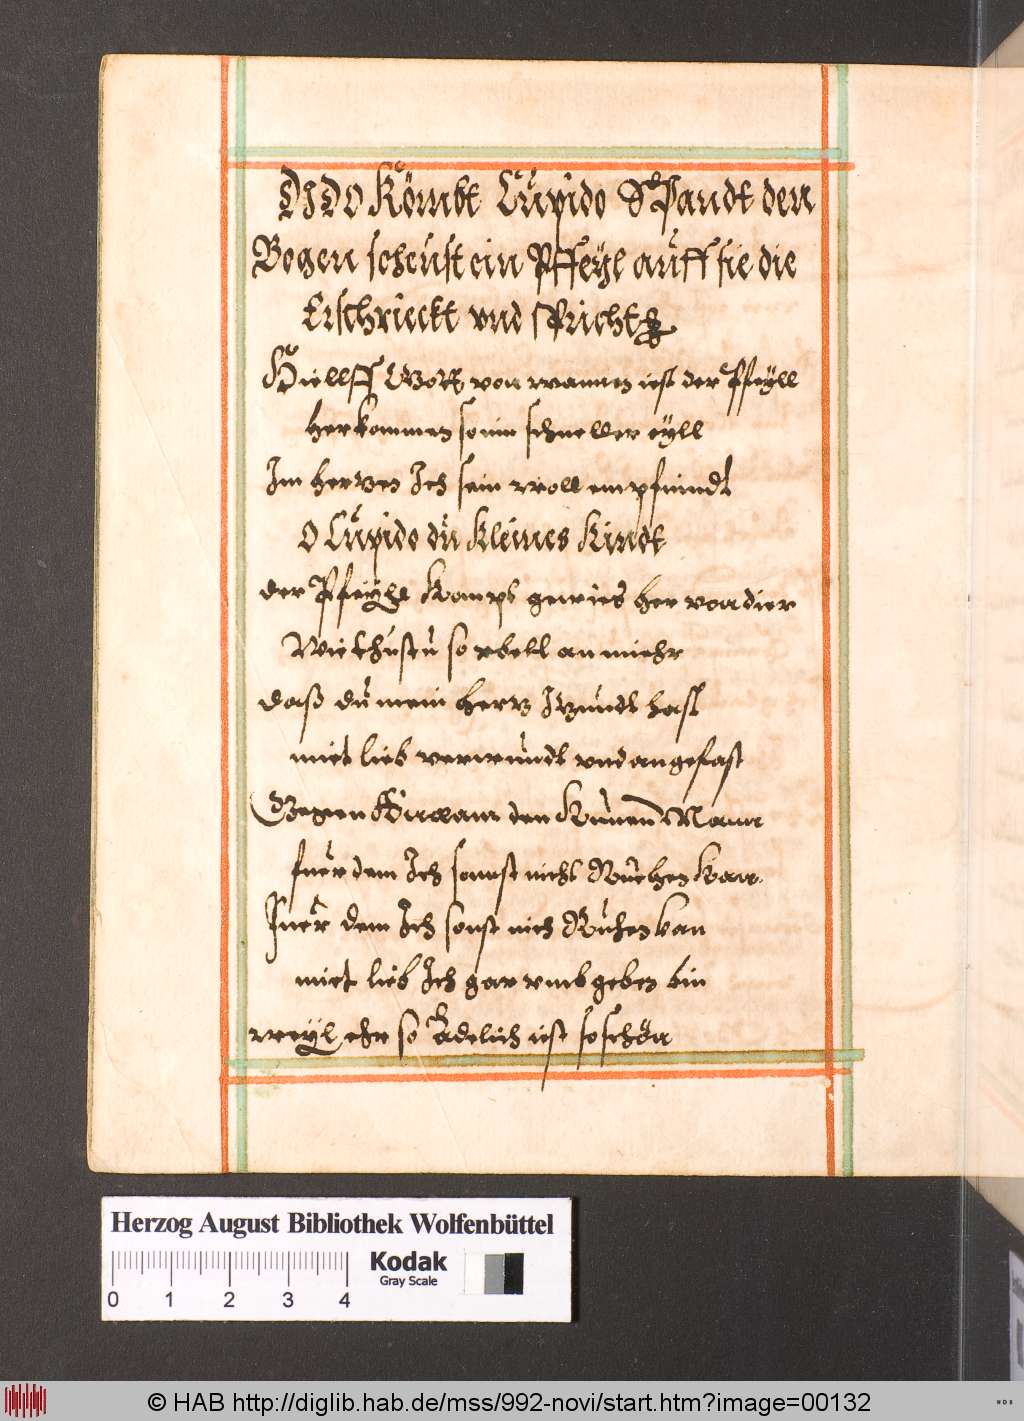 DIDO Kömbt Cupido Spandt den
Bogen scheust ein Pffeyl auff sie die
Erschrieckt vnd Spricht
Hielff Gott von wannen iest der Pffeyll
herkommen so inn schneller eyll
Im hertzen Ich sein woll empfiindt
O Cupido du kleines Kindt
der Pffeyll kompt gewies her von dier
Wie thustu so vbell an miehr
daß du mein hertz Itzundt hast
miet lieb verwundt vnd angefast
Gegen den Kunen Mann
fuer dem Ich sonnst nicht Ruhen kan
Fuer dem Ich sonst nich Ruhen kan
miet lieb Ich gar vmbgeben bin
weyl ehr so Ädelich iest so schön
Herzog August Bibliothek Wolfenbüttel
Kodak
Gray Scale
0 1 2 3 4
© HAB http://diglib.hab.de/mss/992-novi/start.htm?image=00132